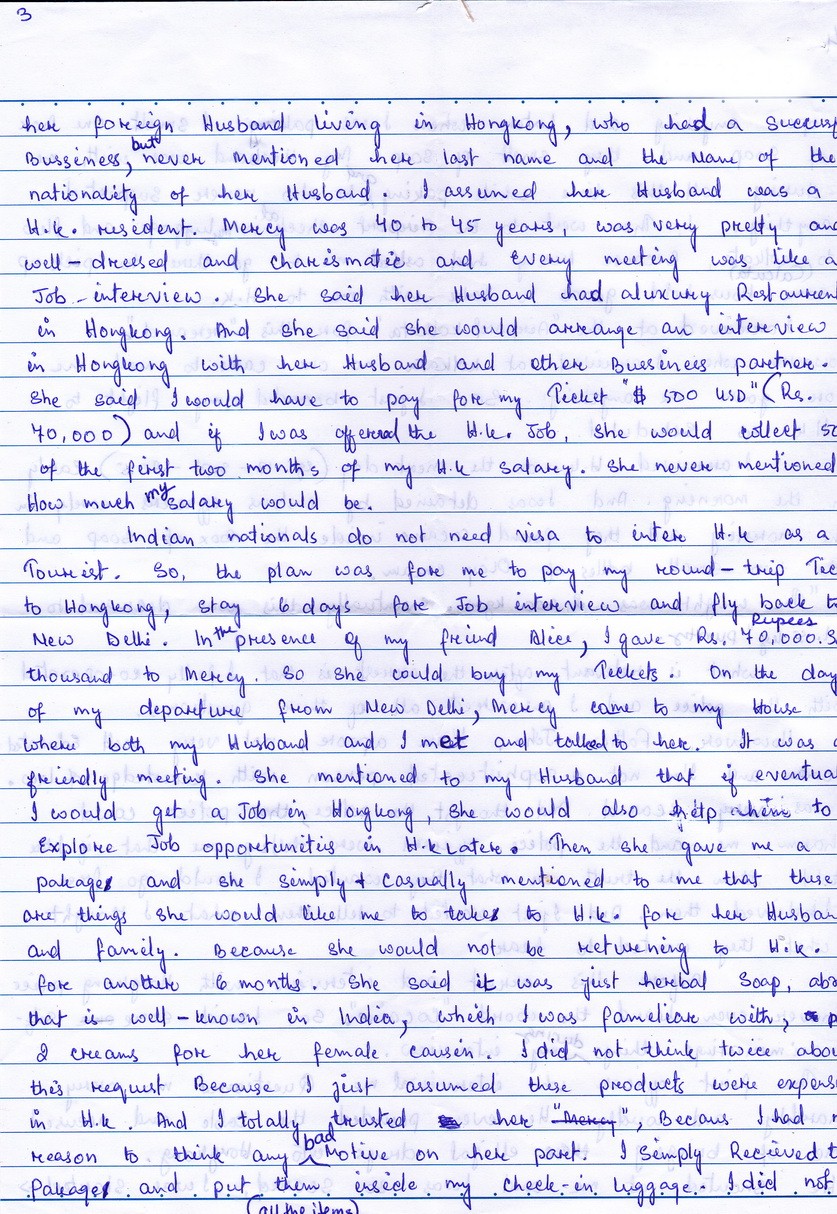 3
her foreign Husband living in Hongkong, who had a Success
Bussiness, but never mentioned her last name and the Name of the
nationality of her Husband. I assumed her Husband was a
H.k. resident. Mercy was 40 to 45 years. was very pretty and
well-dressed and charismatic and Every meeting was like a
Job-interview. She said her Husband had a luxury Restaurent
in Hongkong. And she said she would arrange an interview
in Hongkong with her Husband and other Bussiness partner.
She said I would have to pay for my Ticket "$ 500 USD" (Rs.
70,000) and if I was offered the H.k. Job, she would collect 50
of the first two months of my H.k salary. She never mentioned
How much my salary would be.
Indian nationals do not need visa to inter H.k as a
Tourist. So, the plan was for me to pay my round-trip Tic
to Hongkong, stay 6 days for Job interview and fly back t
New Delhi. In the presence of my friend Alice, I gave Rs. 70,000. S
Rupees
thousand to Mercy. So she could buy my Tickets. On the day
of my departure from New Delhi, Mercy came to my House
where both my Husband and I met and talked to her. It was a
friendly meeting. She mentioned to my Husband that if eventua
I would get a Job in Hongkong, she would also help him to
Explore Job opportunities in H.k Later. Then she gave me a
pakage and she simply & casually mentioned to me that these
are things she would like me to take to H.k. for her Husban
and family. Because she would not be returning to H.k.
for another 6 months. She said it was just herbal Soap,
that is well-known in India, which I was familiar with,
2 creams for her female causin. I did not think twice abou
this request Because I just assumed these products were expens
in H.k And I totally trusted her "Mercy", Becaus I had n
reason to think any bad Motive on her part. I simply Recieved t
Pakage and put them inside my check-in luggage. I did not
(all the items)